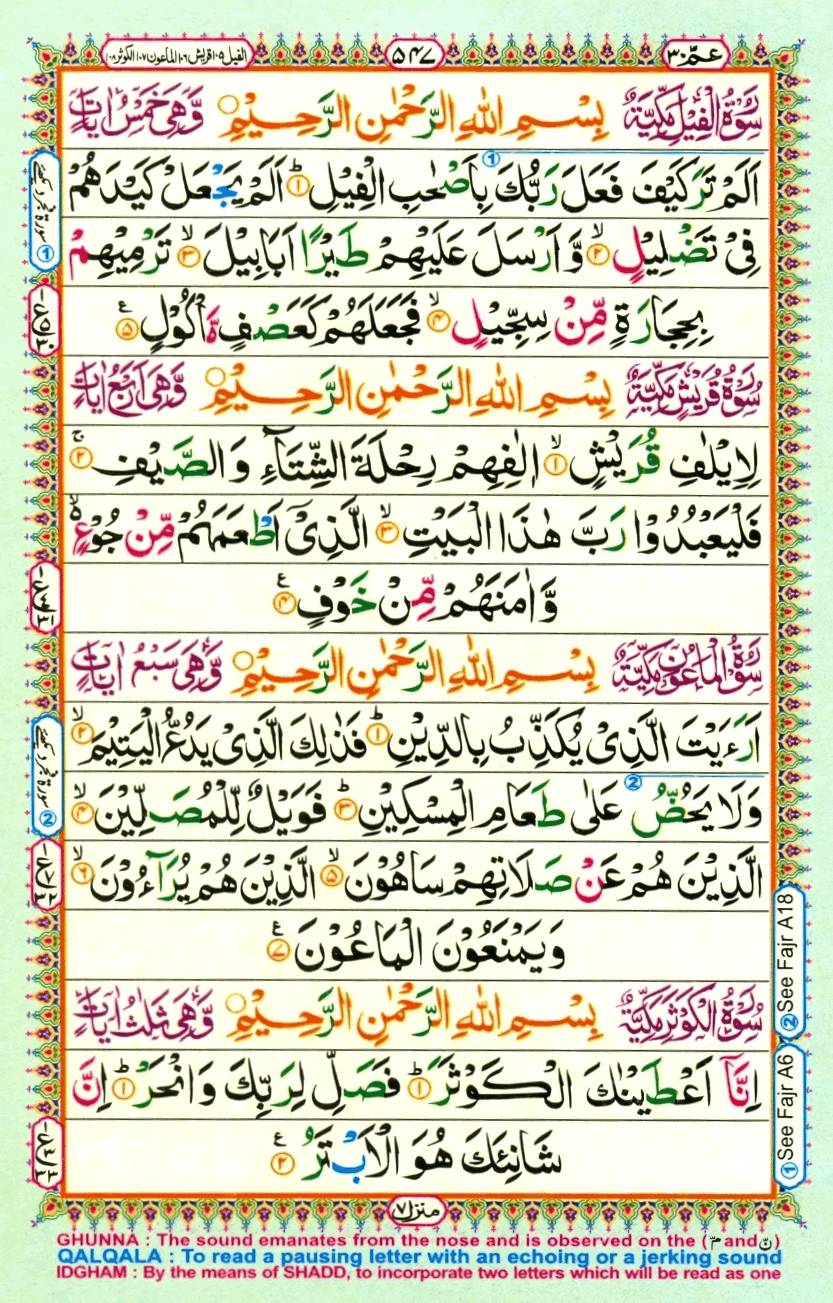 الفیل ۱۰۵ قریش ۱۰۶ الماعون ۱۰۷ الکوثر ۱۰۸
۵۴۷
عمّ ۳۰
سُوْرَةُ الْفِيْلِ مَكِّيَّةٌ بِسْمِ اللّٰهِ الرَّحْمٰنِ الرَّحِيْمِ وَّهِىَ خَمْسُ اٰيَاتٍ
اَلَمْ تَرَ كَيْفَ فَعَلَ رَبُّكَ بِاَصْحٰبِ الْفِيْلِؕ ۱ اَلَمْ يَجْعَلْ كَيْدَهُمْ
فِىْ تَضْلِيْلٍۙ ۲ وَّاَرْسَلَ عَلَيْهِمْ طَيْرًا اَبَابِيْلَۙ ۳ تَرْمِيْهِمْ
بِحِجَارَةٍ مِّنْ سِجِّيْلٍۙ ۴ فَجَعَلَهُمْ كَعَصْفٍ مَّاْكُوْلٍ ۵ ع
سُوْرَةُ قُرَيْشٍ مَكِّيَّةٌ بِسْمِ اللّٰهِ الرَّحْمٰنِ الرَّحِيْمِ وَّهِىَ اَرْبَعُ اٰيَاتٍ
لِاِيْلٰفِ قُرَيْشٍۙ ۱ اٖلٰفِهِمْ رِحْلَةَ الشِّتَآءِ وَالصَّيْفِۚ ۲
فَلْيَعْبُدُوْا رَبَّ هٰذَا الْبَيْتِۙ ۳ الَّذِىْٓ اَطْعَمَهُمْ مِّنْ جُوْعٍ ۙ
وَّاٰمَنَهُمْ مِّنْ خَوْفٍ ۴ ع
سُوْرَةُ الْمَاعُوْنِ مَكِّيَّةٌ بِسْمِ اللّٰهِ الرَّحْمٰنِ الرَّحِيْمِ وَّهِىَ سَبْعُ اٰيَاتٍ
اَرَءَيْتَ الَّذِىْ يُكَذِّبُ بِالدِّيْنِؕ ۱ فَذٰلِكَ الَّذِىْ يَدُعُّ الْيَتِيْمَۙ ۲
وَلَا يَحُضُّ عَلٰى طَعَامِ الْمِسْكِيْنِؕ ۳ فَوَيْلٌ لِّلْمُصَلِّيْنَۙ ۴
الَّذِيْنَ هُمْ عَنْ صَلَاتِهِمْ سَاهُوْنَۙ ۵ الَّذِيْنَ هُمْ يُرَآءُوْنَۙ ۶
وَيَمْنَعُوْنَ الْمَاعُوْنَ ۷ ع
سُوْرَةُ الْكَوْثَرِ مَكِّيَّةٌ بِسْمِ اللّٰهِ الرَّحْمٰنِ الرَّحِيْمِ وَّهِىَ ثَلٰثُ اٰيَاتٍ
اِنَّاۤ اَعْطَيْنٰكَ الْكَوْثَرَؕ ۱ فَصَلِّ لِرَبِّكَ وَانْحَرْؕ ۱ اِنَّ
شَانِئَكَ هُوَ الْاَبْتَرُ ۲ ع
منزل ۷
① سورة فجر دیکھئے
② سورة فجر دیکھئے
② See Fajr A18
① See Fajr A6
GHUNNA : The sound emanates from the nose and is observed on the (مّ and نّ)
QALQALA : To read a pausing letter with an echoing or a jerking sound
IDGHAM : By the means of SHADD, to incorporate two letters which will be read as one